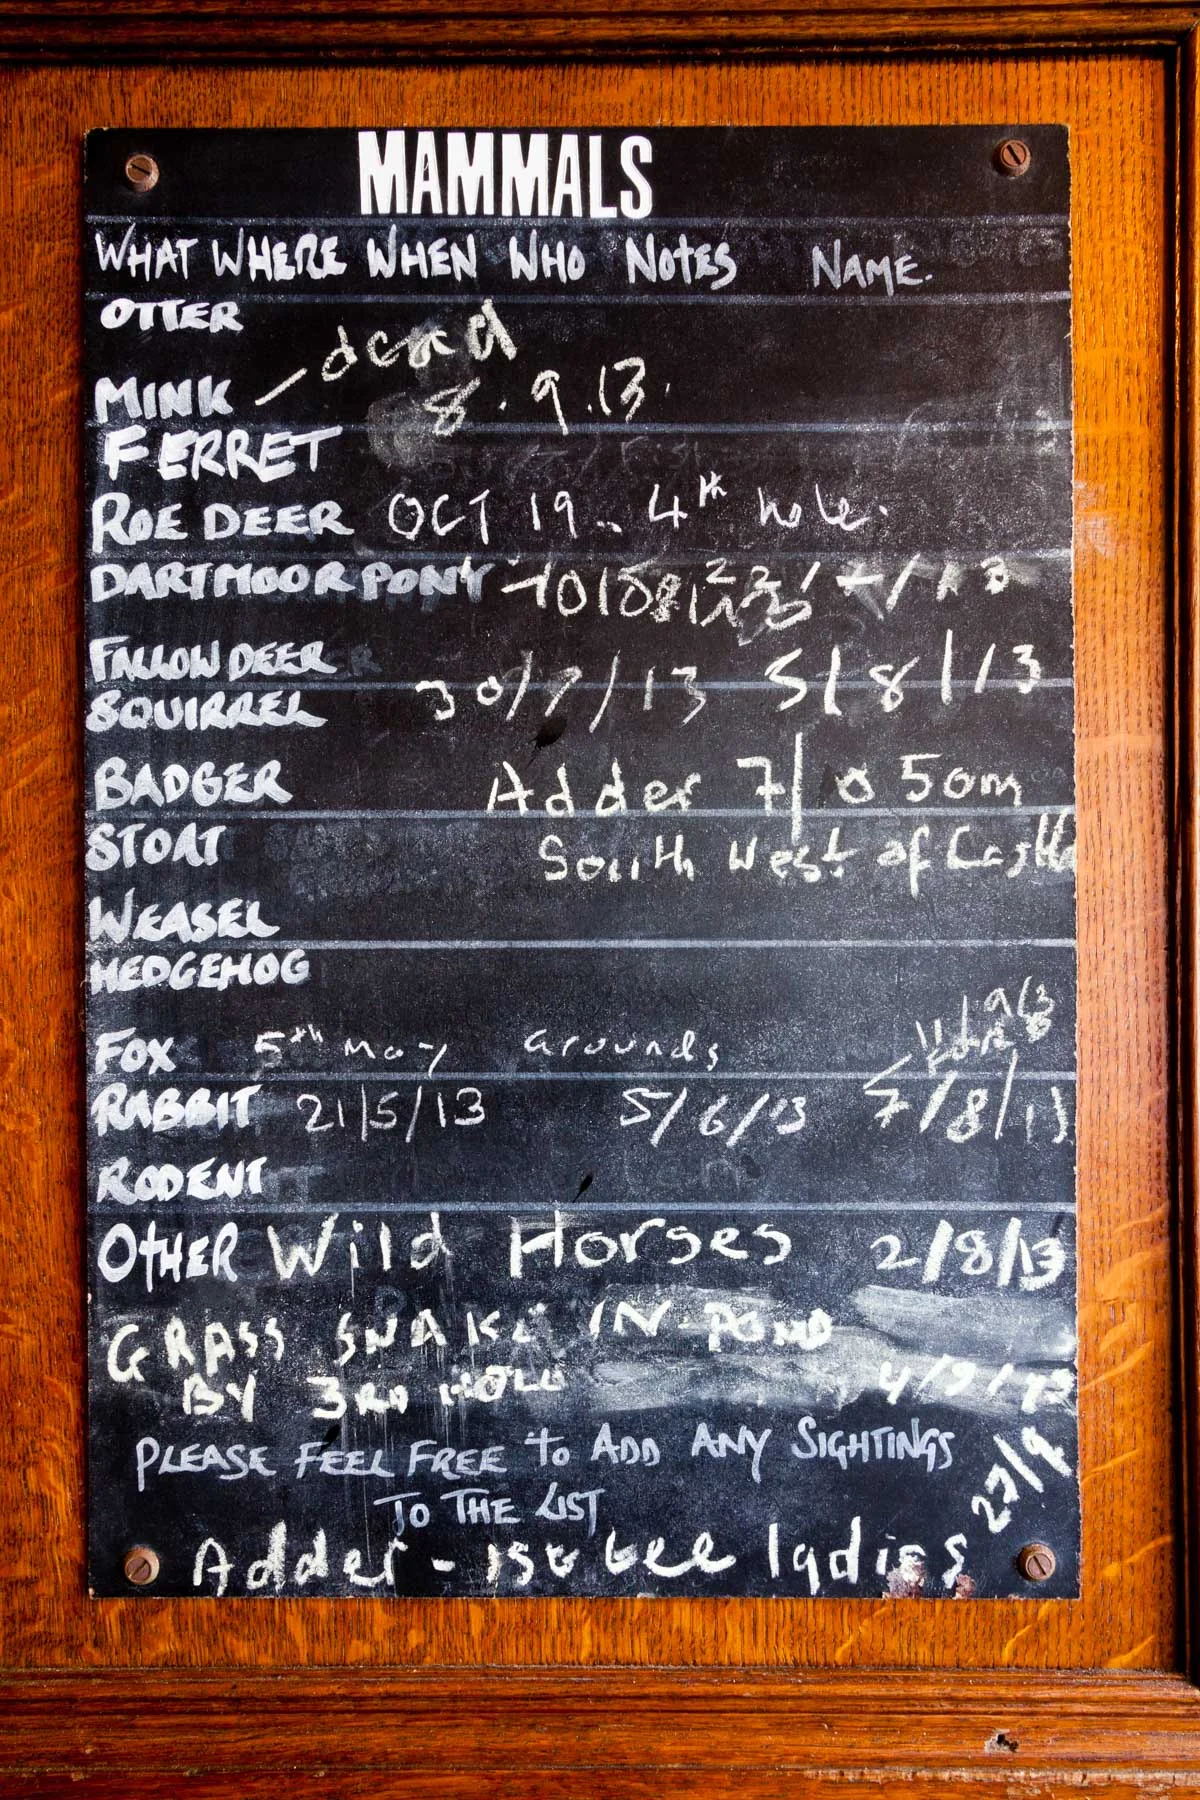 MAMMALS
WHAT WHERE WHEN WHO NOTES NAME.
OTTER
dead
MINK – 8.9.13.
FERRET
ROE DEER OCT 19.. 4th hole.
DARTMOOR PONY
FALLOW DEER
30/7/13 5/8/13
SQUIRREL
BADGER Adder 7/ 50m
STOAT South West of Castle
WEASEL
HEDGEHOG
FOX 5th may Grounds
RABBIT 21/5/13 5/6/13 7/8/13
RODENT
OTHER Wild Horses 2/8/13
GRASS SNAKE IN POND
BY 3RD HOLE 4/9/13
PLEASE FEEL FREE to ADD ANY SIGHTINGS
TO THE LIST
27/9
Adder - ladies